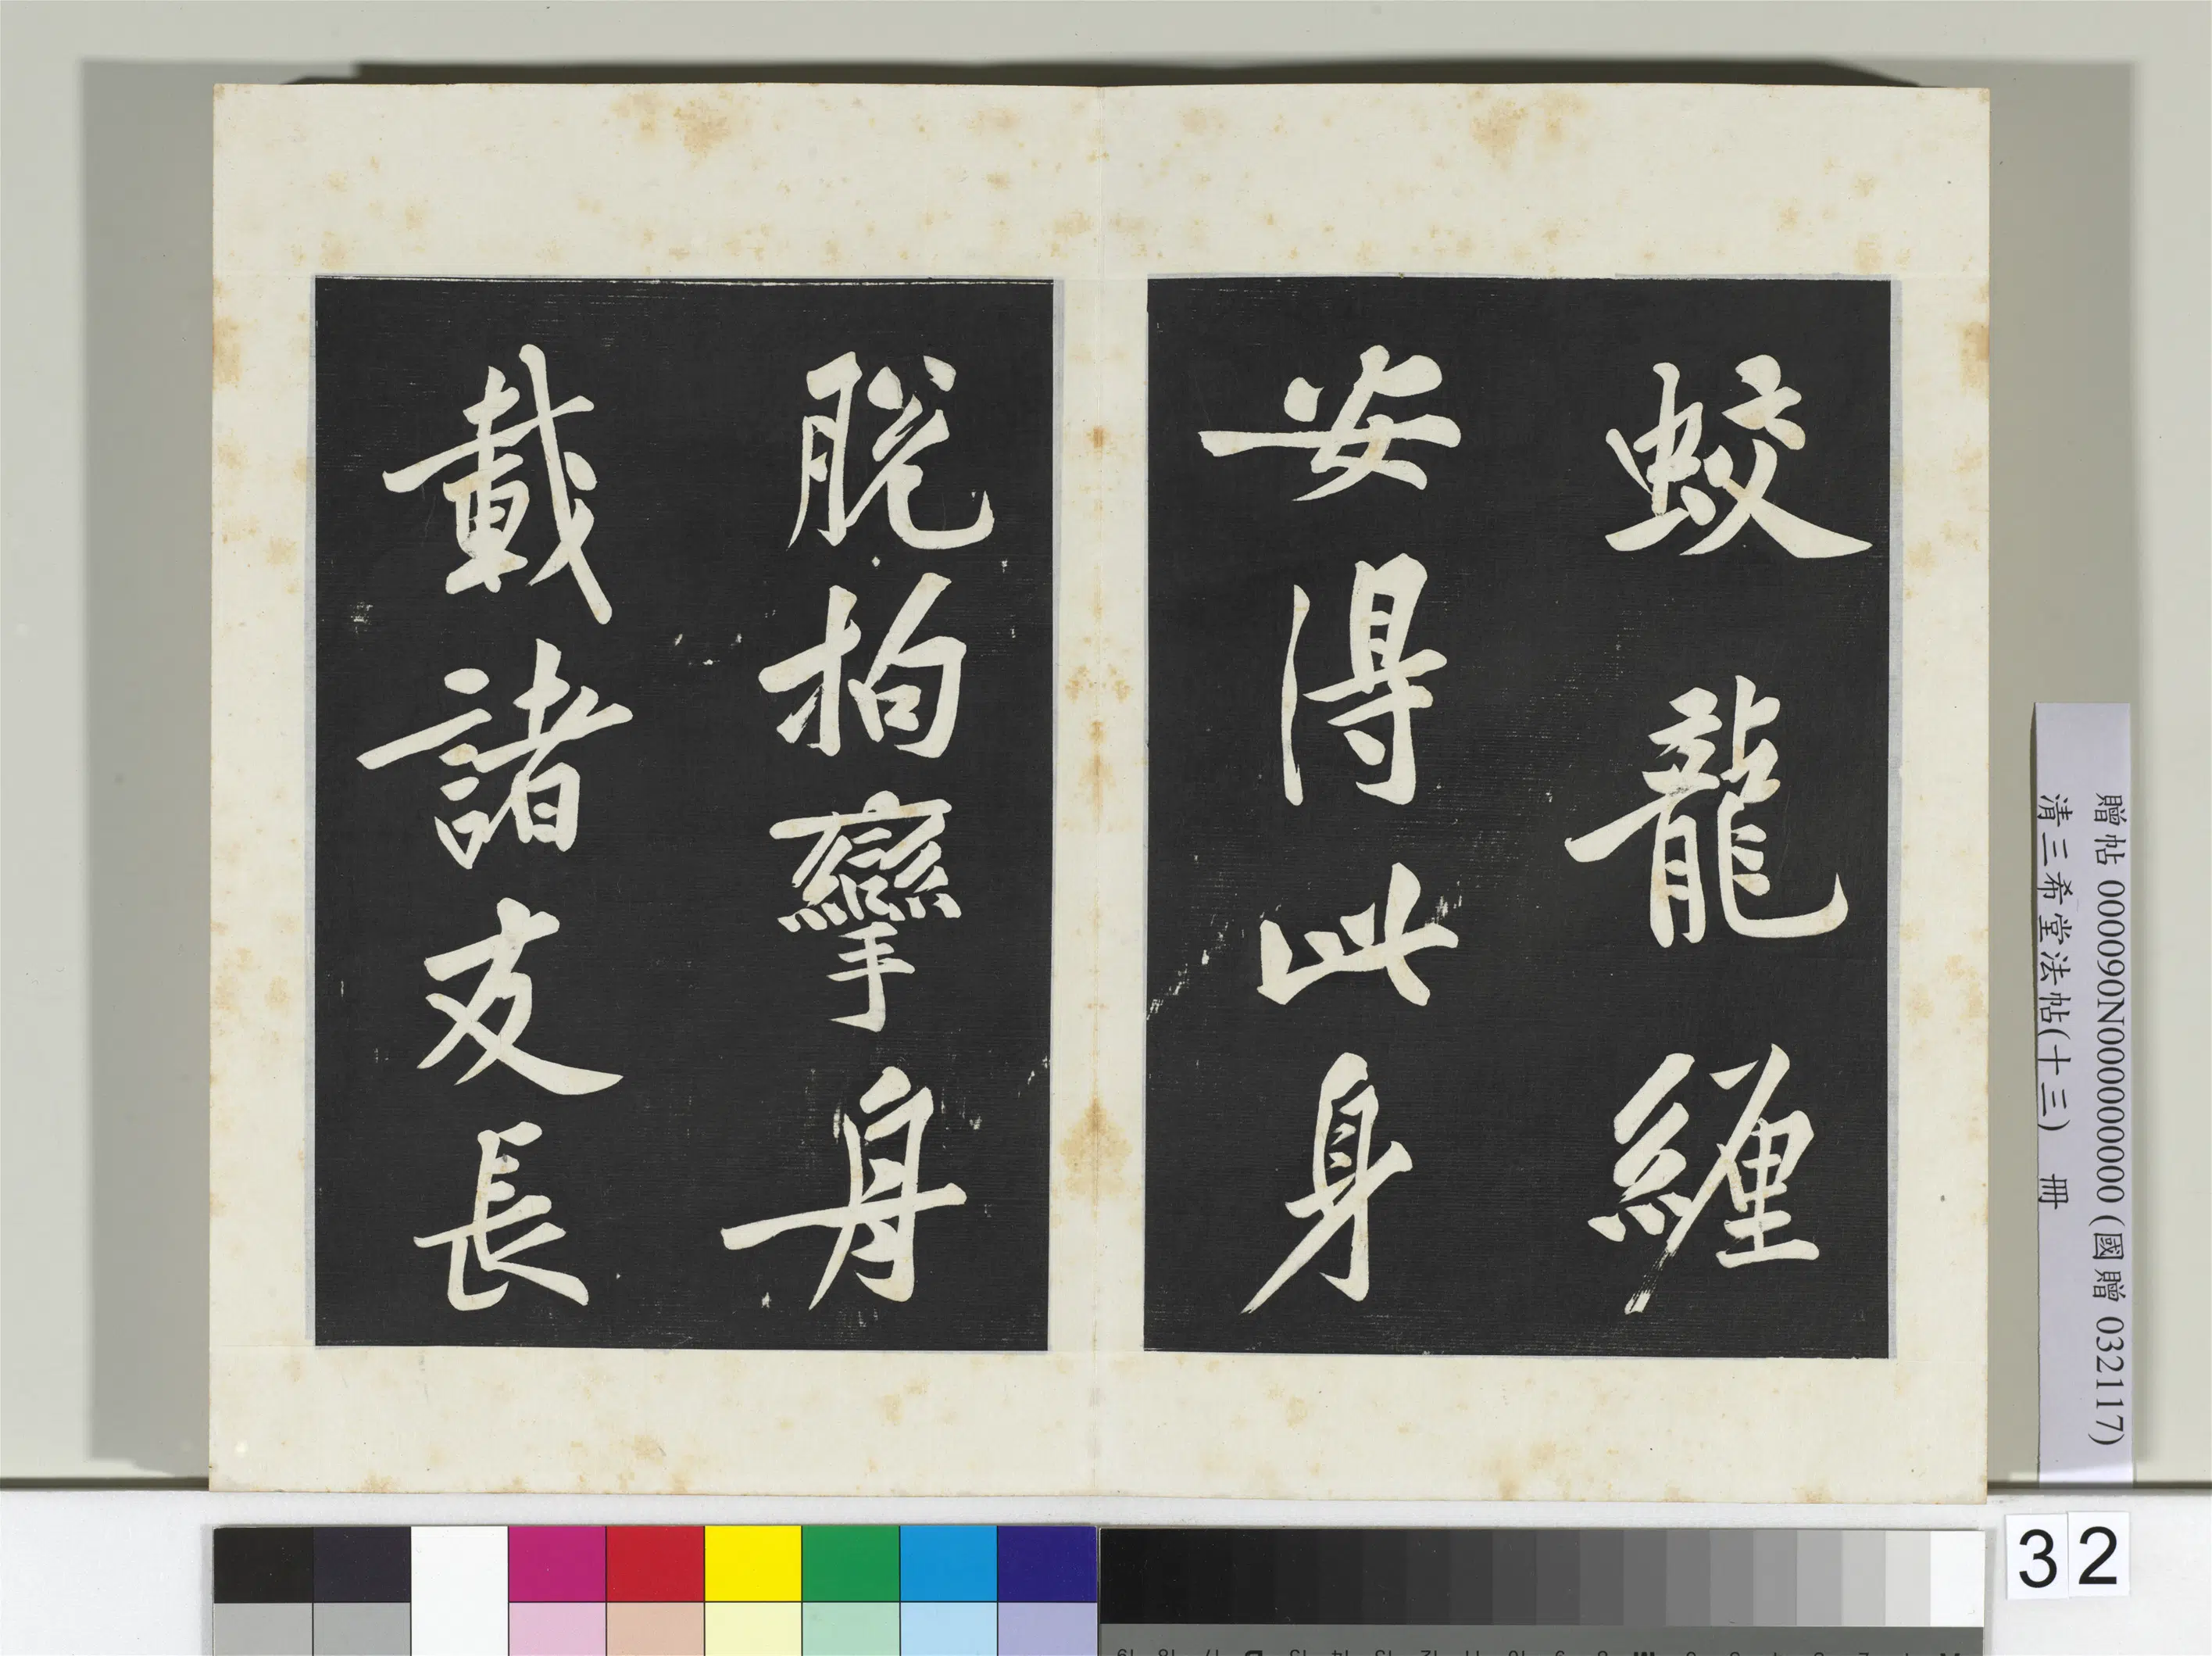 蛟龍纏
安得此身
脫拘攣舟
載諸友長
贈帖 000090N000000000 (國贈 032117)
清三希堂法帖(十三) 冊
32